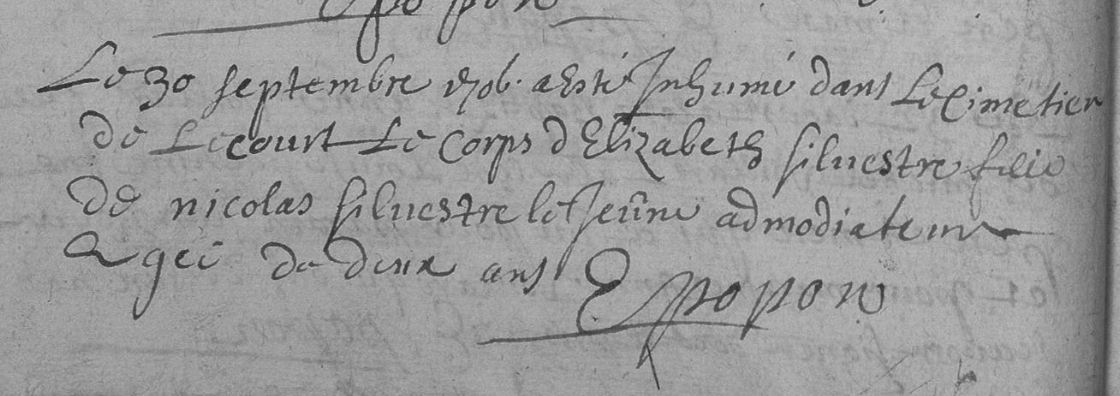 Popon
Le 30 septembre 1706. a Esté Inhumé dans Le Cimetier
de Lecourt Le Corps d Elizabeth silvestre fille
de nicolas silvestre le Jeûne admodiateur
Agée de deux ans E popon